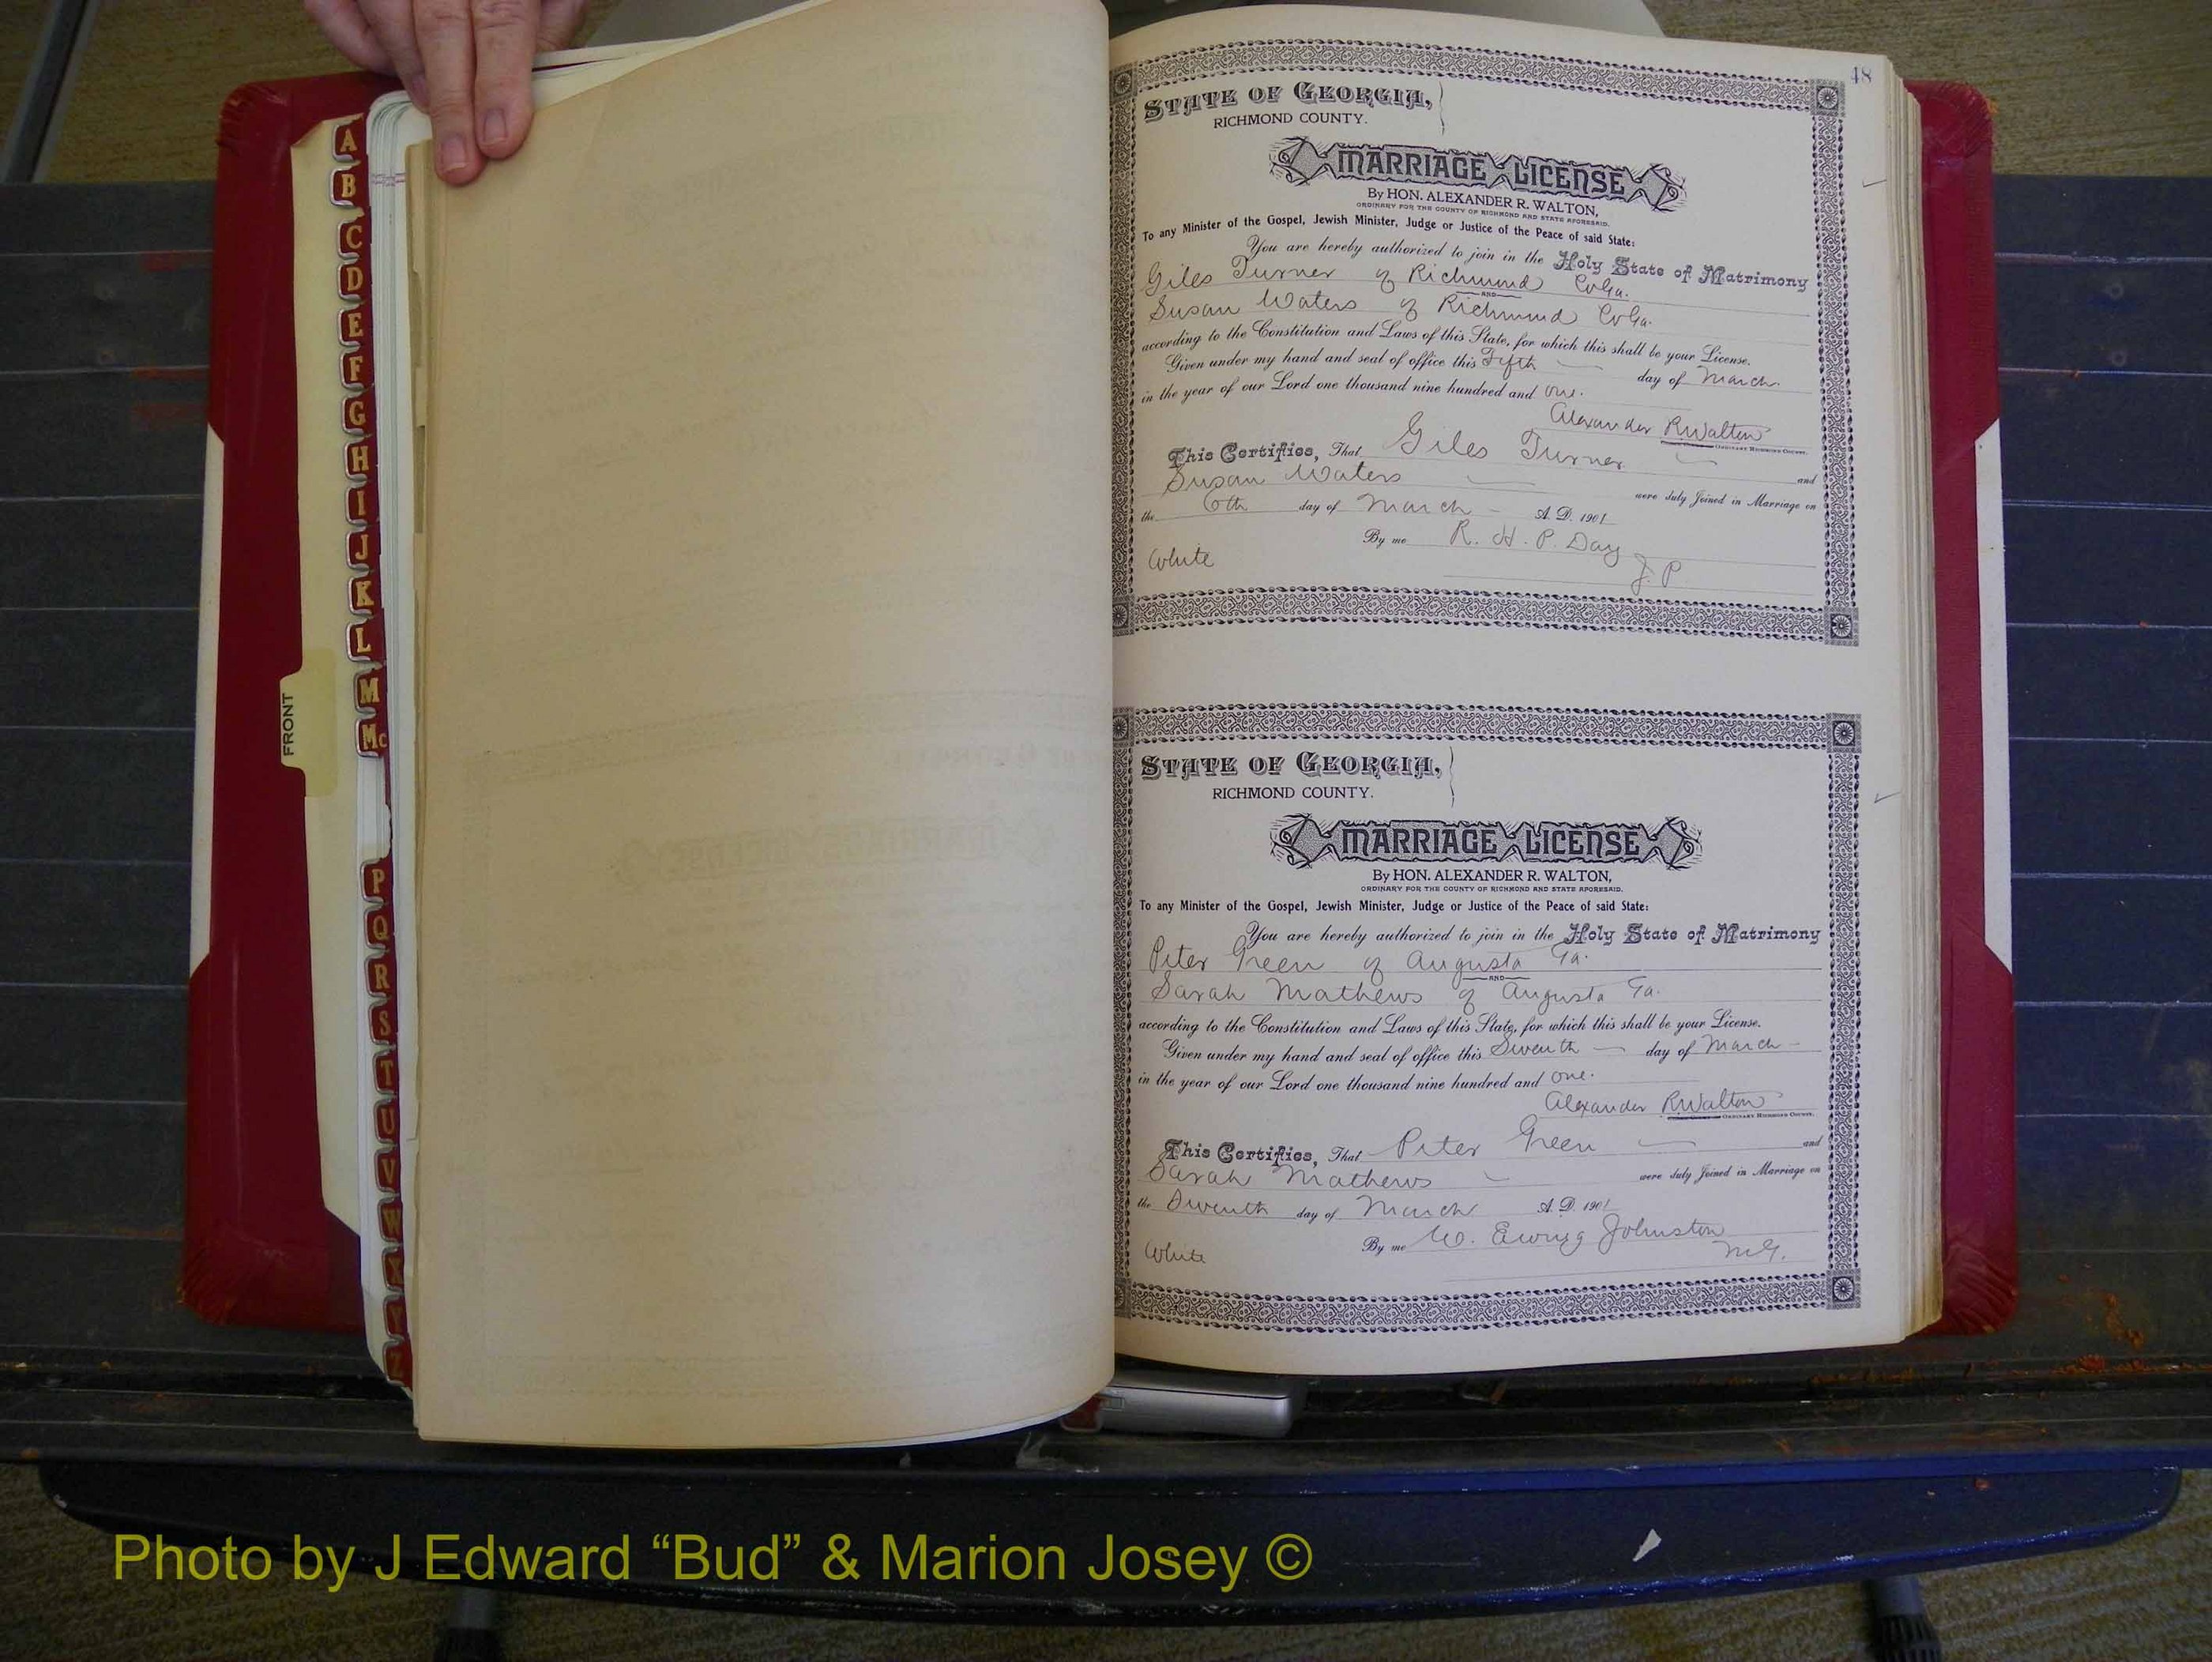 A
B
C
D
E
F
G
H
I
J
K
L
M
Mc
P
Q
R
S
T
U
V
W
X
Y
Z
FRONT
48
STATE OF GEORGIA,
RICHMOND COUNTY.
MARRIAGE LICENSE
By HON. ALEXANDER R. WALTON,
ORDINARY FOR THE COUNTY OF RICHMOND AND STATE AFORESAID.
To any Minister of the Gospel, Jewish Minister, Judge or Justice of the Peace of said State:
You are hereby authorized to join in the Holy State of Matrimony
Giles Turner of Richmond Co Ga.
AND
Susan Waters of Richmond Co Ga.
according to the Constitution and Laws of this State, for which this shall be your License.
Given under my hand and seal of office this Fifth day of March.
in the year of our Lord one thousand nine hundred and one.
Alexander R Walton
ORDINARY RICHMOND COUNTY.
This Certifies, That Giles Turner and
Susan Waters were duly Joined in Marriage on
the 6th day of March A. D. 1901
By me R. H. P. Day
J. P
White
STATE OF GEORGIA,
RICHMOND COUNTY.
MARRIAGE LICENSE
By HON. ALEXANDER R. WALTON,
ORDINARY FOR THE COUNTY OF RICHMOND AND STATE AFORESAID.
To any Minister of the Gospel, Jewish Minister, Judge or Justice of the Peace of said State:
You are hereby authorized to join in the Holy State of Matrimony
Peter Green of Augusta Ga.
AND
Sarah Mathews of Augusta Ga.
according to the Constitution and Laws of this State, for which this shall be your License.
Given under my hand and seal of office this Seventh day of March
in the year of our Lord one thousand nine hundred and one.
Alexander R Walton
ORDINARY RICHMOND COUNTY.
This Certifies, That Peter Green and
Sarah Mathews were duly Joined in Marriage on
the Seventh day of March A. D. 1901
By me W. Ewing Johnston
M.G.
White
Photo by J Edward “Bud” & Marion Josey ©